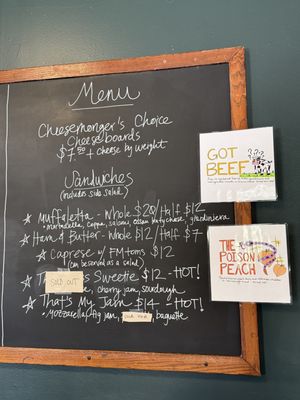 Menu
Cheesemonger's Choice
Cheeseboards
$7.50 + cheese by weight
Sandwiches
(includes side salad)
☆ Muffaletta - Whole $20/Half $12
• mortadella, coppa, salami, giardiniera
☆ Ham & Butter - Whole $12/Half $7
☆ Caprese w/ FM toms $12
(can be served as a salad)
Sweetie $12 - HOT!
SOLD OUT
cherry jam, sourdough
☆ That's My Jam $14 - HOT!
• Mozzarella, fig jam, baguette
GOT
BEEF
???
THE
POISON
PEACH